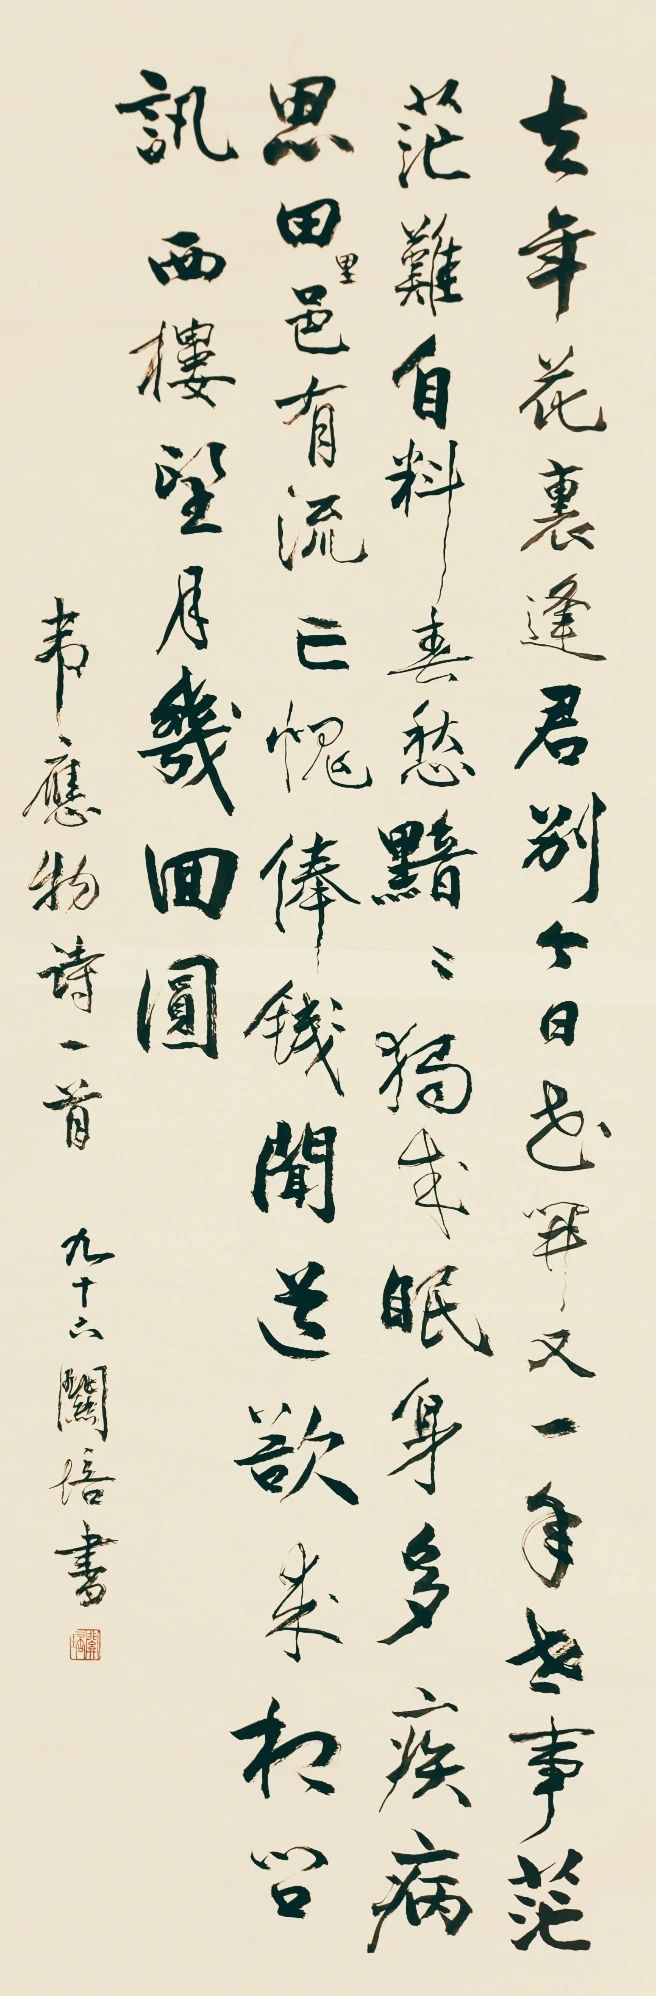 去年花裏逢君别今日花開又一年世事茫
茫難自料春愁黯〻獨成眠身多疾病
思田里邑有流亡愧俸錢聞道欲來相問
訊西樓望月幾回圓
韦應物诗一首 九十六關培書
關培